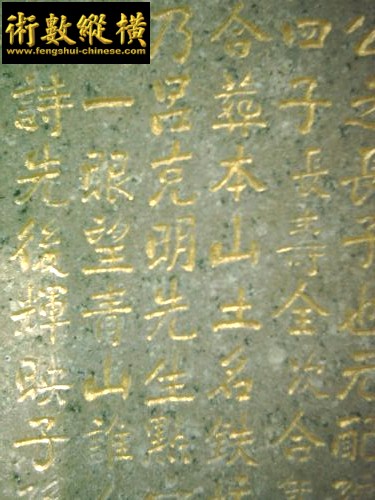 術數縱橫
www.fengshui-chinese.com
公之長子也元配
四子長壽全次合
合葬本山土名鉄
乃呂克明先生點
一眼望青山誰
詩先後輝映子